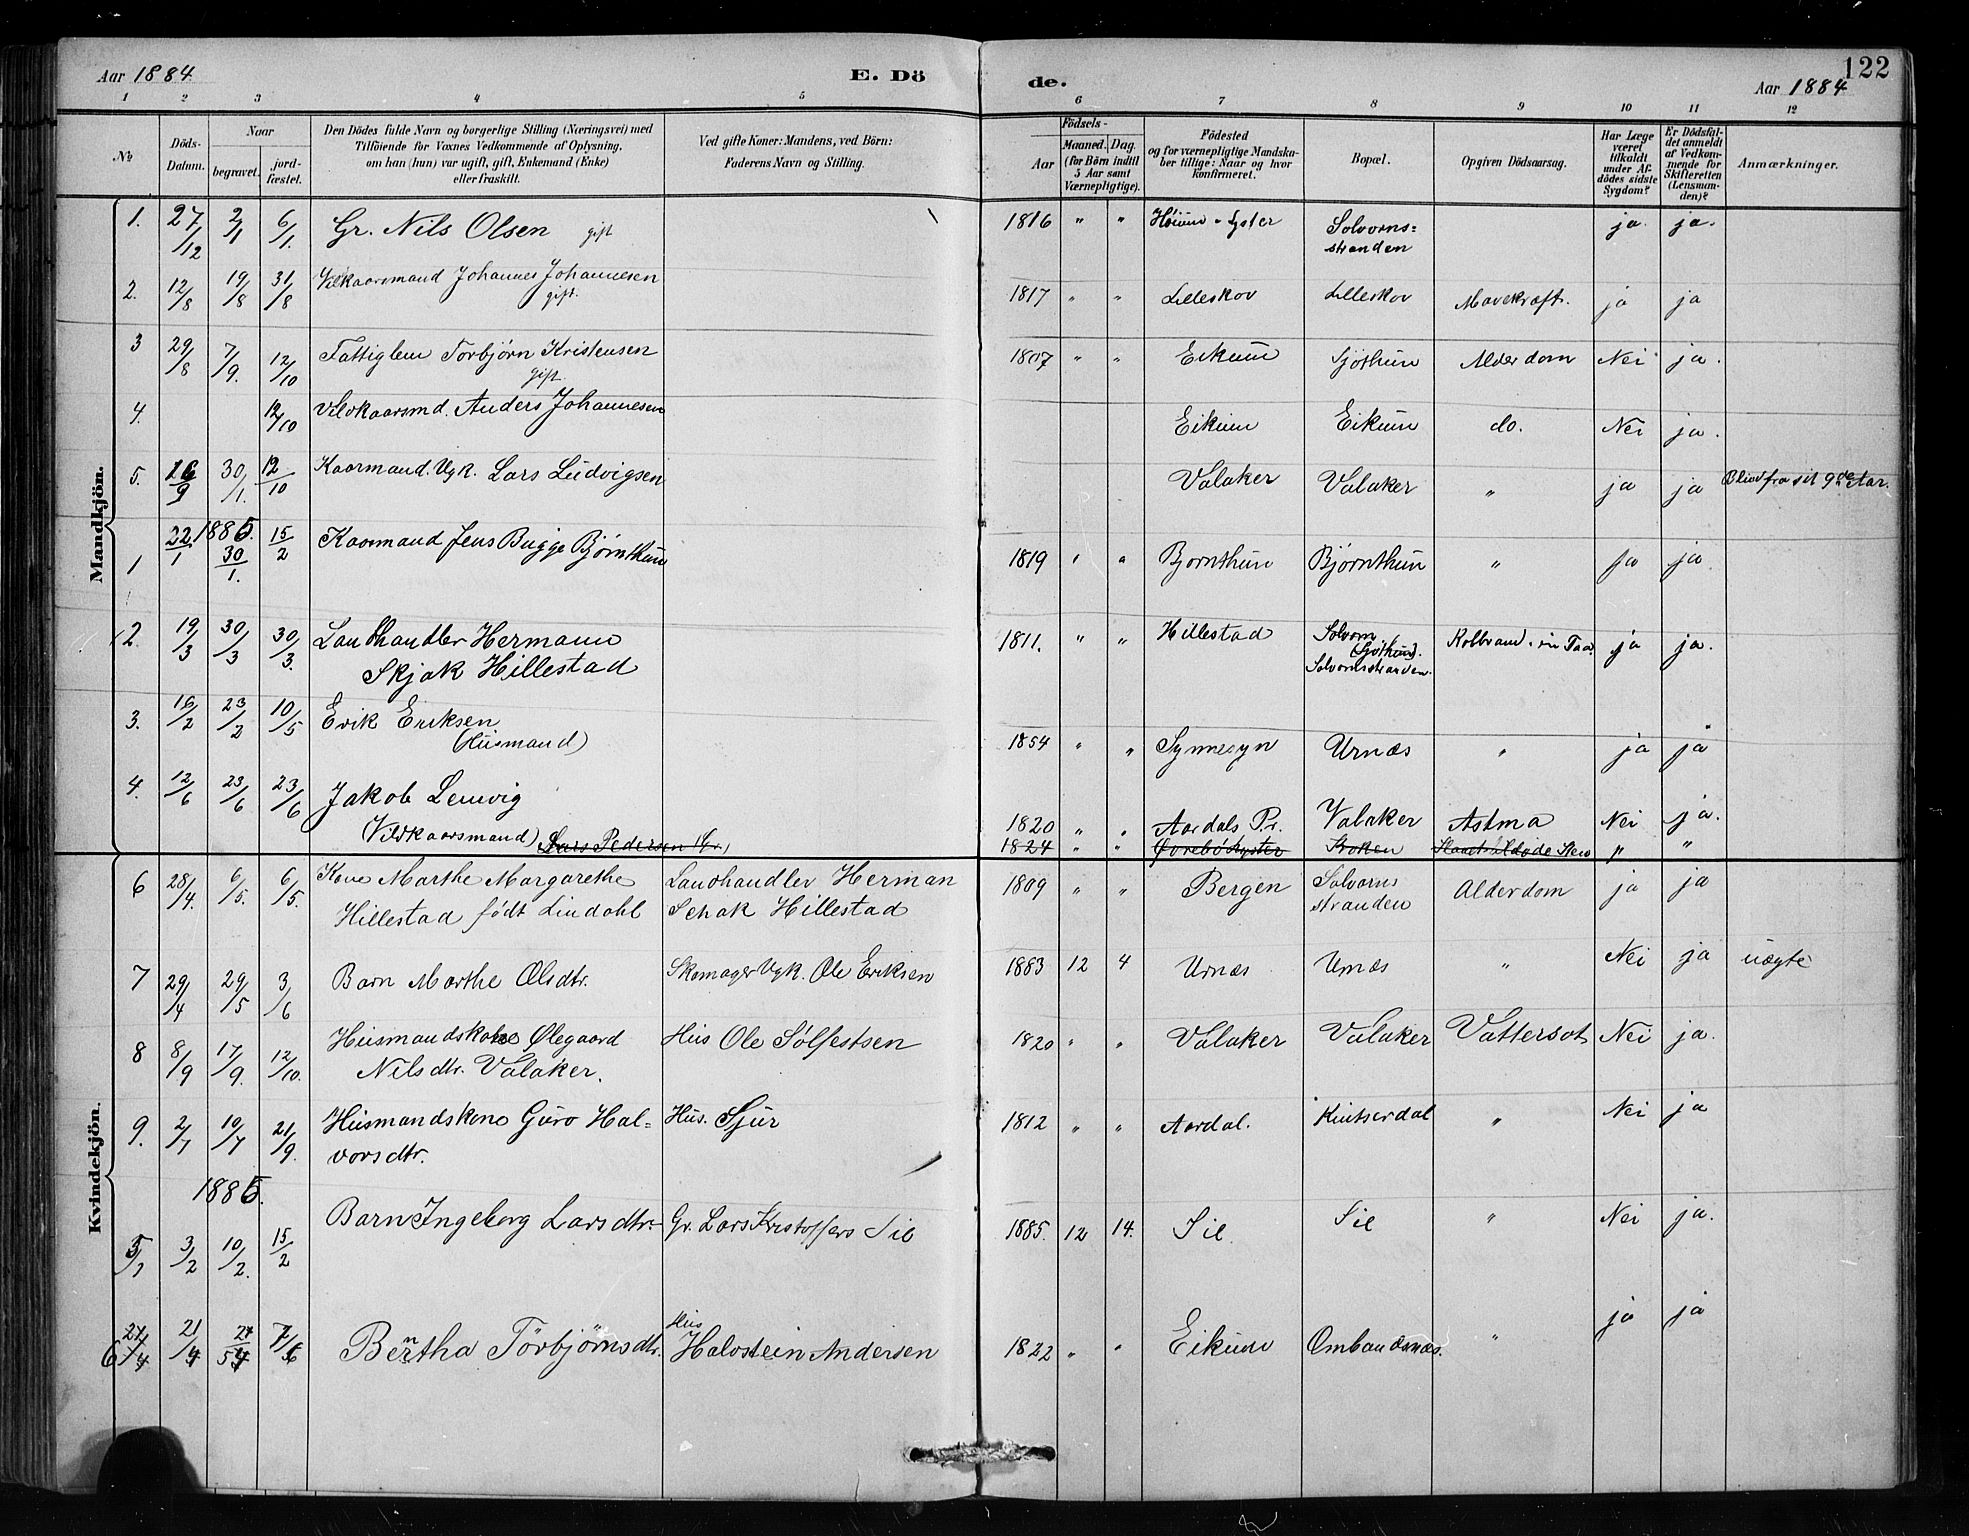 Aar 1884
E. Dö
de.
Aar 1884
122
1 2 3 4 5 6 7 8 9 10 11 12
No
Döds-Datum.
Naar
begravet.
jord-fæstet.
Den Dödes fulde Navn og borgerlige Stilling (Næringsvei) med
Tilföiende for Voxnes Vedkommende af Oplysning,
om han (hun) var ugift, gift, Enkemand (Enke)
eller fraskilt.
Ved gifte Koner: Mandens, ved Börn:
Faderens Navn og Stilling.
Födsels-
Aar
Maaned. Dag.
(for Börn indtil
5 Aar samt
Værnepligtige).
Födested
og for værnepligtige Mandska-
ber tillige: Naar og hvor
konfirmeret.
Bopæl.
Opgiven Dödsaarsag.
Har Læge
været
tilkaldt
under Af-
dödes sidste
Sygdom?
Er Dödsfal-
det anmeldt
af Vedkom-
mende for
Skifteretten
(Lensman-
den)?
Anmærkninger.
Mandkjön.
1. 27/12 2/1 6/1. Gr. Nils Olsen gift 1816 " " Høium - Lyster Solvorns=stranden ja. ja.
2. 12/8 19/8 31/8 Vilkaarsmand Johannes Johannesen gift. 1817 " " Lilleskov Lilleskov Mavekræft. ja ja
3 29/8 7/9. 12/10 Fattiglem Torbjørn Kristensen gift 1807 " " Eikum Sjøthun Alderdom Nei ja.
4. 12/10 Vilvkaarsmd. Anders Johannesen Eikum Eikum do. Nei ja.
5. 16/9 30/1. 12/10 Kaarmand. Ugk. Lars Ludvigsen Valaker Valaker " ja ja Blind fra sit 9de Aar.
1885.
1 22/1 30/1. 15/2 Kaarmand Jens Bugge Bjørnthun 1819 " " Bjornthun Bjørnthun " ja ja.
2. 19/3 30/3 30/3. Landhandler Hermann
Skjak Hillestad 1811. " " Hillestad Solvorn (Sjøthun). Solvornsstranden. Kolbrand i en Taa. ja ja.
3. 16/2 23/2 10/5 Erik Eriksen
(Husmand) 1854 " " Synnesyn Urnæs " ja ja
4. 12/6 23/6 23/6 Jakob Lemvig
(Vilkaarsmand) 1820 " " Aardals Pr. Valaker Astma Nei ja.
Lars Pedersen Gr. 1824 " " Øvrebø Lyster Kroken " "
Kvindekjön.
6 28/4. 6/5. 6/5. Kone Marthe Margarethe
Hillestad født Lindahl Landhandler Herman
Schak Hillestad 1809 " " Bergen Solvorns stranden Alderdom ja ja
7 29/4 29/5 3/6 Barn Marthe Olsdtr. Skomager Ugk. Ole Eriksen 1883 12 4 Urnæs Urnæs " Nei ja uægte
8 8/9 17/9. 12/10. Husmandskone Ølegaard
Nilsdtr. Valaker. Hus Ole Sølfestsen 1820 " " Valaker Valaker Vattersot Nei ja.
9. 2/7 10/7 21/9. Husmandskone Guro Hal=
vorsdtr. Hus. Sjur 1812 " " Aardal. Kintserdal " Nei ja
1885.
5 3/2 10/2. 15/2 Barn Ingeborg Larsdtr. Gr. Lars Kristoffers Sie 1885. 12 14. Sie Sie " Nei ja.
6 21/4 Bertha Torbjørnsdtr. Hus
Halvstein Andersen 1822 " " Eikum Ombandsnæs. " ja ja